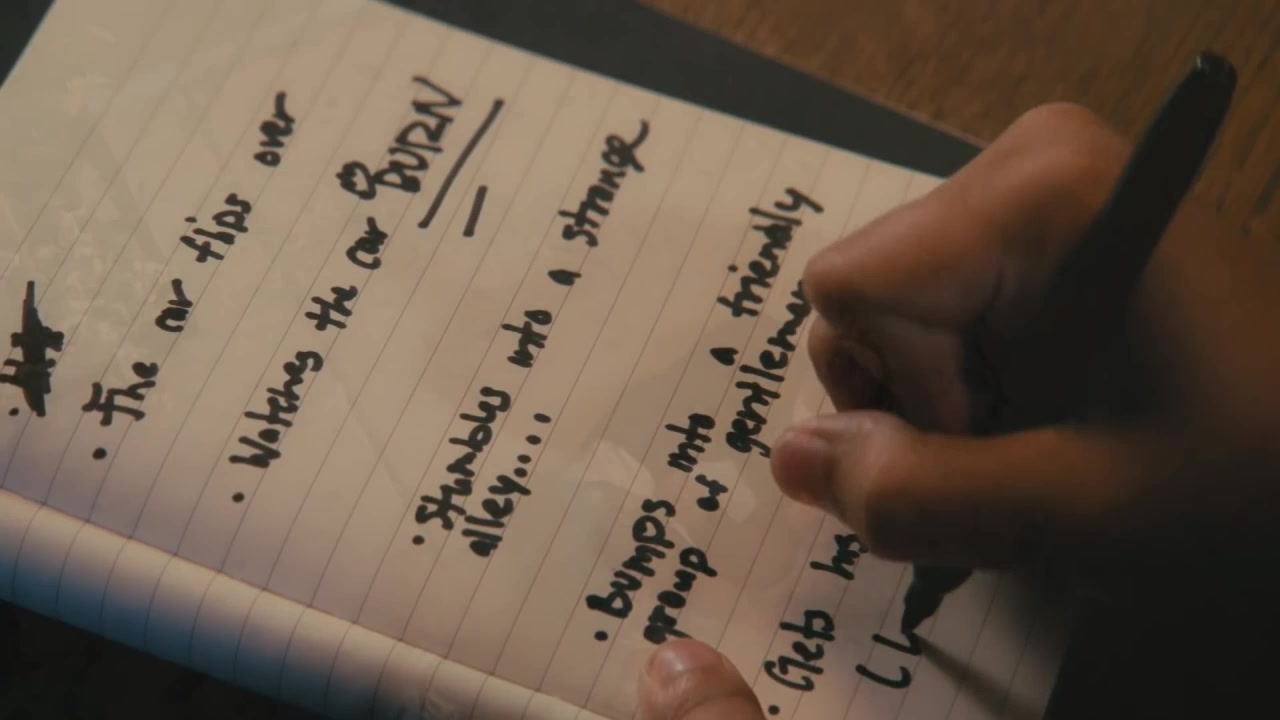 • The car flips over
• Watches the car BURN
• Stumbles into a strange
alley....
• Bumps into a friendly
group of gentleman
• Gets his